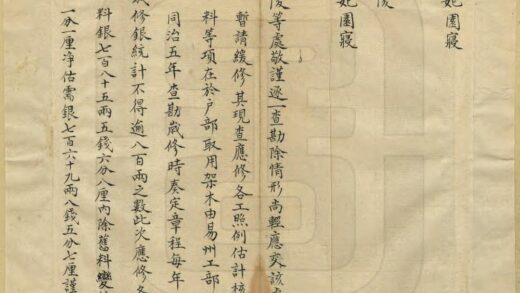 妃園寢
陵
妃園寢
陵等處敬謹逐一查勘除情形尚輕應交該
暫請緩修其現查應修各工照例估計核
料等項在於戶部取用架木由易州工部
同治五年查勘歲修時奏定章程每年
歲修銀統計不得逾八百兩之數此次應修各
料銀七百八十五兩五錢六分八厘內除舊料變
一分一厘淨估需銀七百六十九兩八錢五分七厘謹